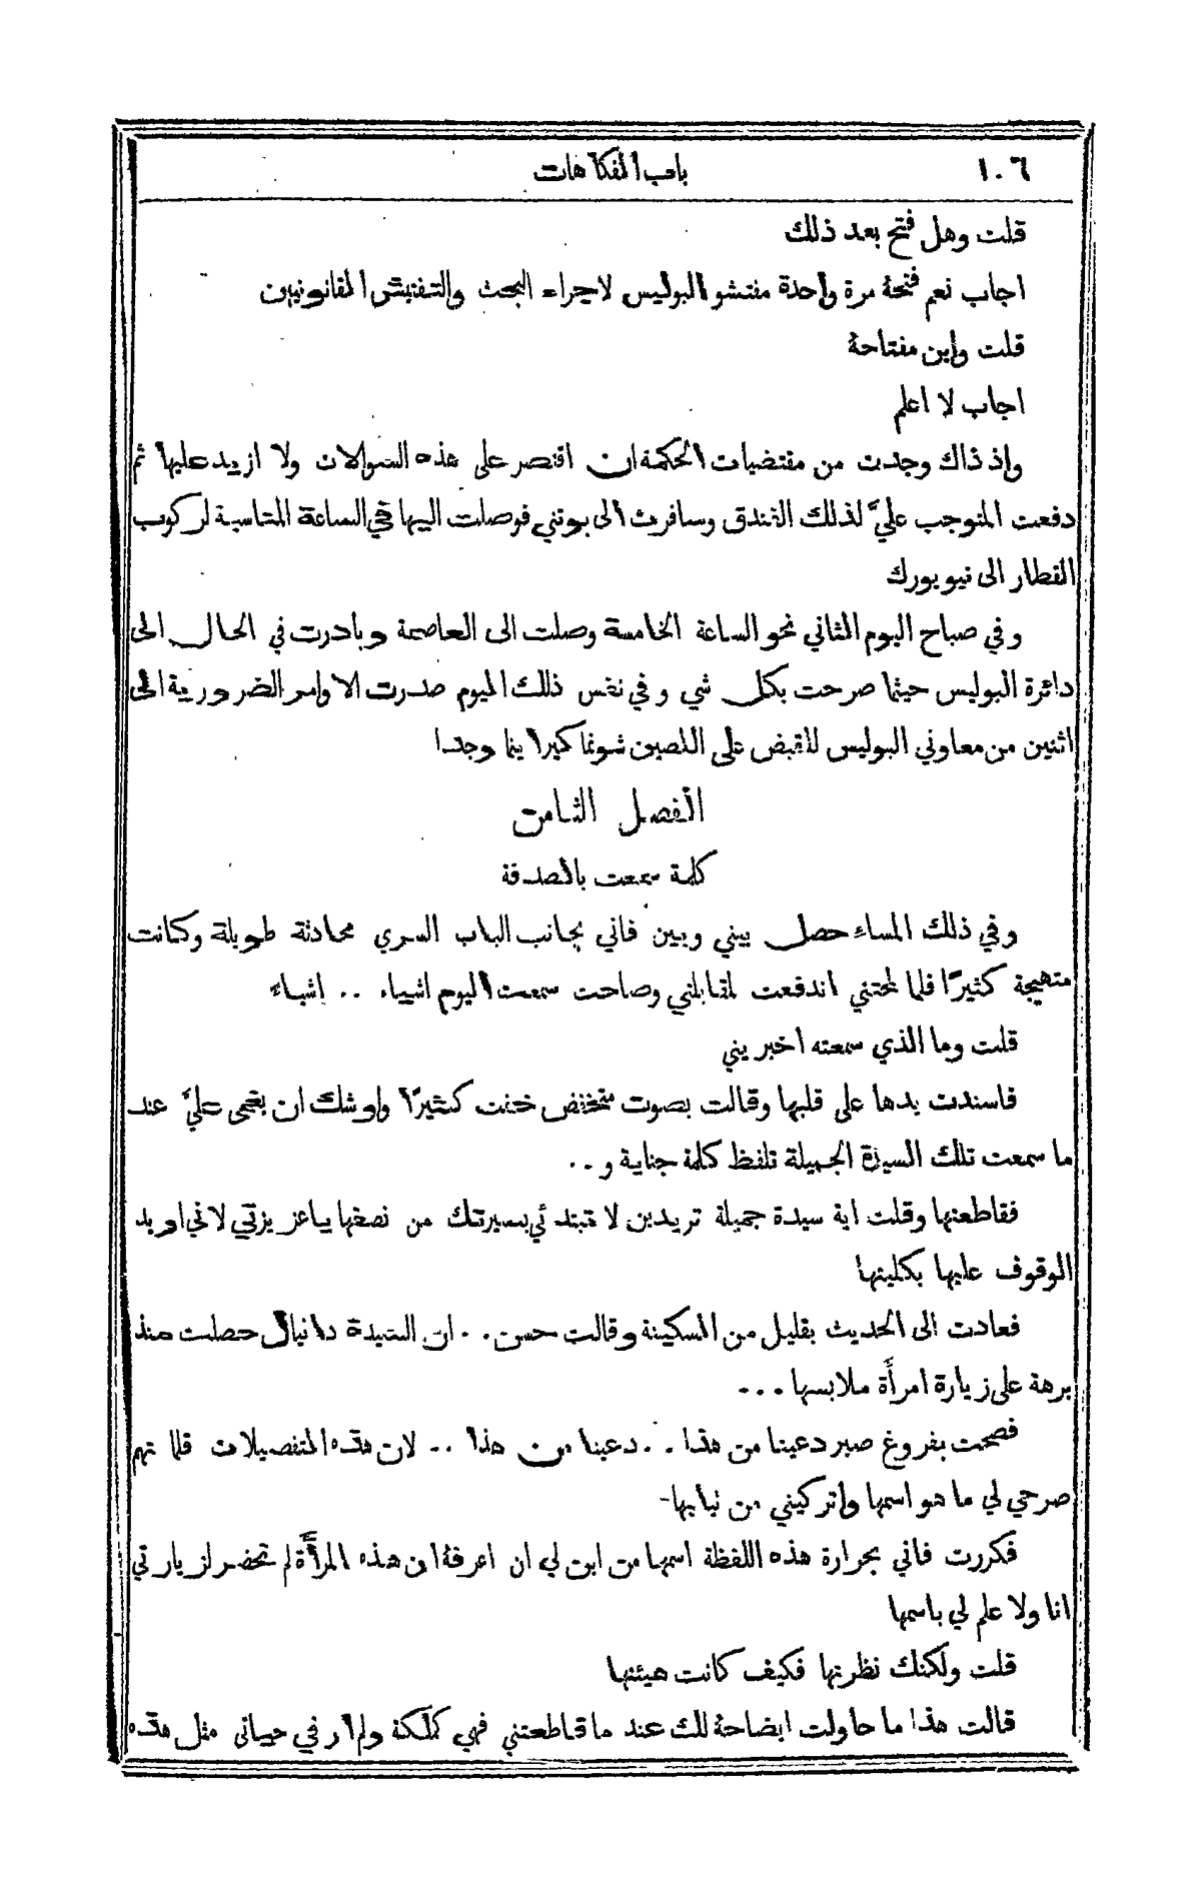 ١٠٦ باب الفكاهات
قلت وهل فتح بعد ذلك
اجاب نعم فتحة مرة واحدة مفتشو البوليس لاجراء البحث والتفتيش القانونيين
قلت واين مفتاحة
اجاب لا اعلم
واذ ذاك وجدت من مقتضيات الحكمة ان اقتصر على هذه السوالات ولا ازيد عليها ثم
دفعت المتوجب عليَّ لذلك الفندق وسافرت الى بوتني فوصلت اليها في الساعة المناسبة لركوب
القطار الى نيويورك
وفي صباح اليوم الثاني نحو الساعة الخامسة وصلت الى العاصمة وبادرت في الحال الى
دائرة البوليس حيثما صرحت بكل شي وفي نفس ذلك اليوم صدرت الاوامر الضرورية الى
اثنين من معاوني البوليس للقبض على اللصين شونماكير اينما وجدا
الفصل الثامن
كلمة سمعت بالصدفة
وفي ذلك المساء حصل بيني وبين فاني بجانب الباب السري محادثة طويلة وكانت
متهيجة كثيرًا فلما لمحتني اندفعت لمقابلتي وصاحت سمعت اليوم اشياء .. اشياء
قلت وما الذي سمعته اخبريني
فاسندت يدها على قلبها وقالت بصوت منخفض خفت كثيرًا واوشك ان يغمى عليَّ عند
ما سمعت تلك السيدة الجميلة تلفظ كلمة جناية و..
فقاطعتها وقلت اية سيدة جميلة تريدين لا تبتدئي بسيرتك من نصفها يا عزيزتي لاني اريد
الوقوف عليها بكليتها
فعادت الى الحديث بقليل من السكينة وقالت حسن .. ان السيدة دانيال حصلت منذ
برهة على زيارة امرأة ملابسها ...
فصحت بفروغ صبر دعينا من هذا .. دعينا من هذا .. لان هذه التفصيلات قلما تهم
صرحي لي ما هو اسمها واتركيني من ثيابها
فكررت فاني بحرارة هذه اللفظة اسمها من اين لي ان اعرفة ان هذه المرأة لم تحضر لزيارتي
انا ولا علم لي باسمها
قلت ولكنك نظرتها فكيف كانت هيئتها
قالت هذا ما حاولت ايضاحة لك عند ما قاطعتني فهي كملكة ولم ار في حياتي مثل هذه